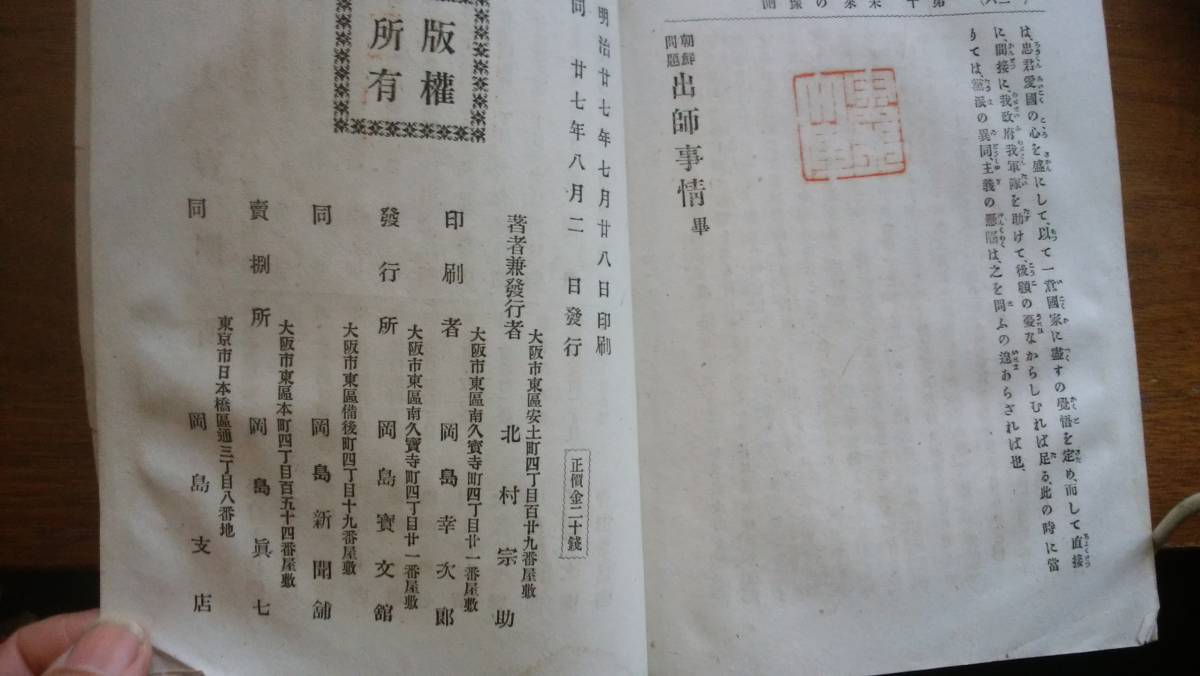 は、忠君愛國の心を盛にして、以て一意國家に盡すの覺悟を定め、而して直接
に、間接に、我政府我軍隊を助けて、後顧の憂なからしむれば足る、此の時に當
りては、黨派の異同、主義の
は、之を問ふの遑あらざれば也、
朝鮮問題 出師事情 畢
版權所有
明治廿七年七月廿八日印刷
同 廿七年八月二 日發行
正價金二十錢
大阪市東區安土町四丁目百廿九番屋敷
著者兼發行者 北村宗助
大阪市東區南久寶寺町四丁目廿一番屋敷
印刷者 岡島幸次郎
大阪市東區南久寶寺町四丁目廿一番屋敷
發行所 岡島寶文館
大阪市東區備後町四丁目十九番屋敷
同 岡島新聞舖
大阪市東區本町四丁目百五十四番屋敷
賣捌所 岡島眞七
東京市日本橋區通三丁目八番地
同 岡島支店